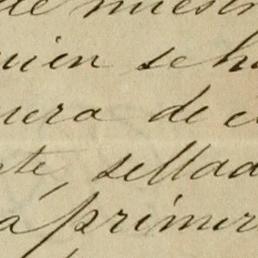 de nuestr
uien se ha
nera de e
te, sellad
á primer